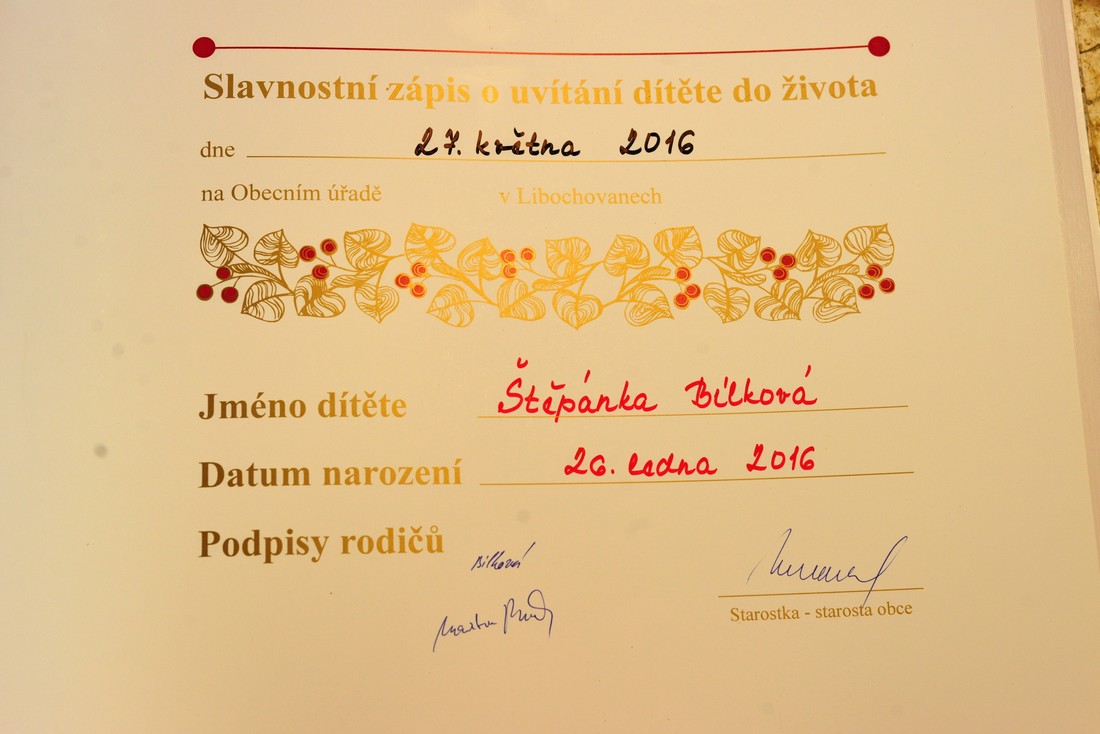 Slavnostní zápis o uvítání dítěte do života
dne 27. května 2016
na Obecním úřadě v Libochovanech
Jméno dítěte Štěpánka Bílková
Datum narození 26. ledna 2016
Podpisy rodičů
Bílková
Starostka - starosta obce